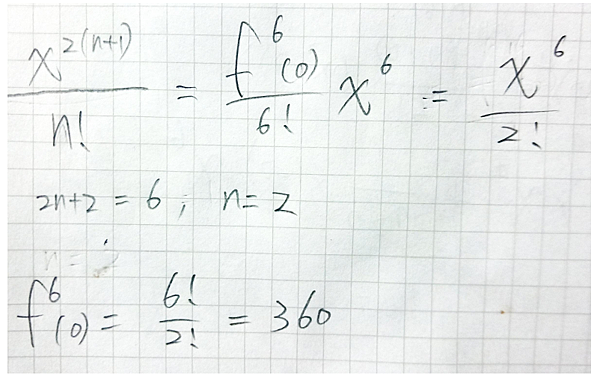 x^{2(n+1)}/n! = f^6(0)/6! x^6 := x^6/2!
2n+2 = 6; n=2
f^6(0) = 6!/2! = 360